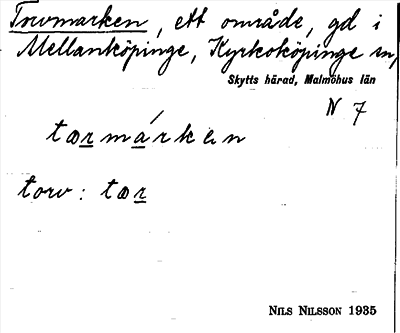 Torvmarken, ett område, gd i
Mellanköpinge, Kyrkoköpinge sn,
Skytts härad, Malmöhus län
N 7
tærmárken
torv: tær
NILS NILSSON 1935